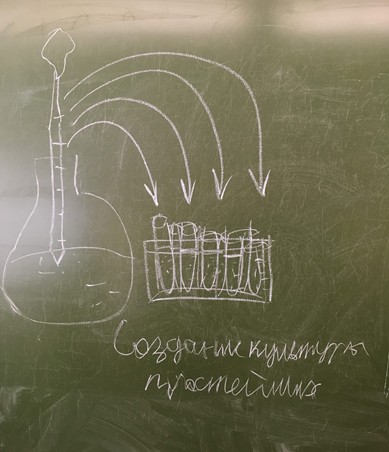 Создание культуры
простейших